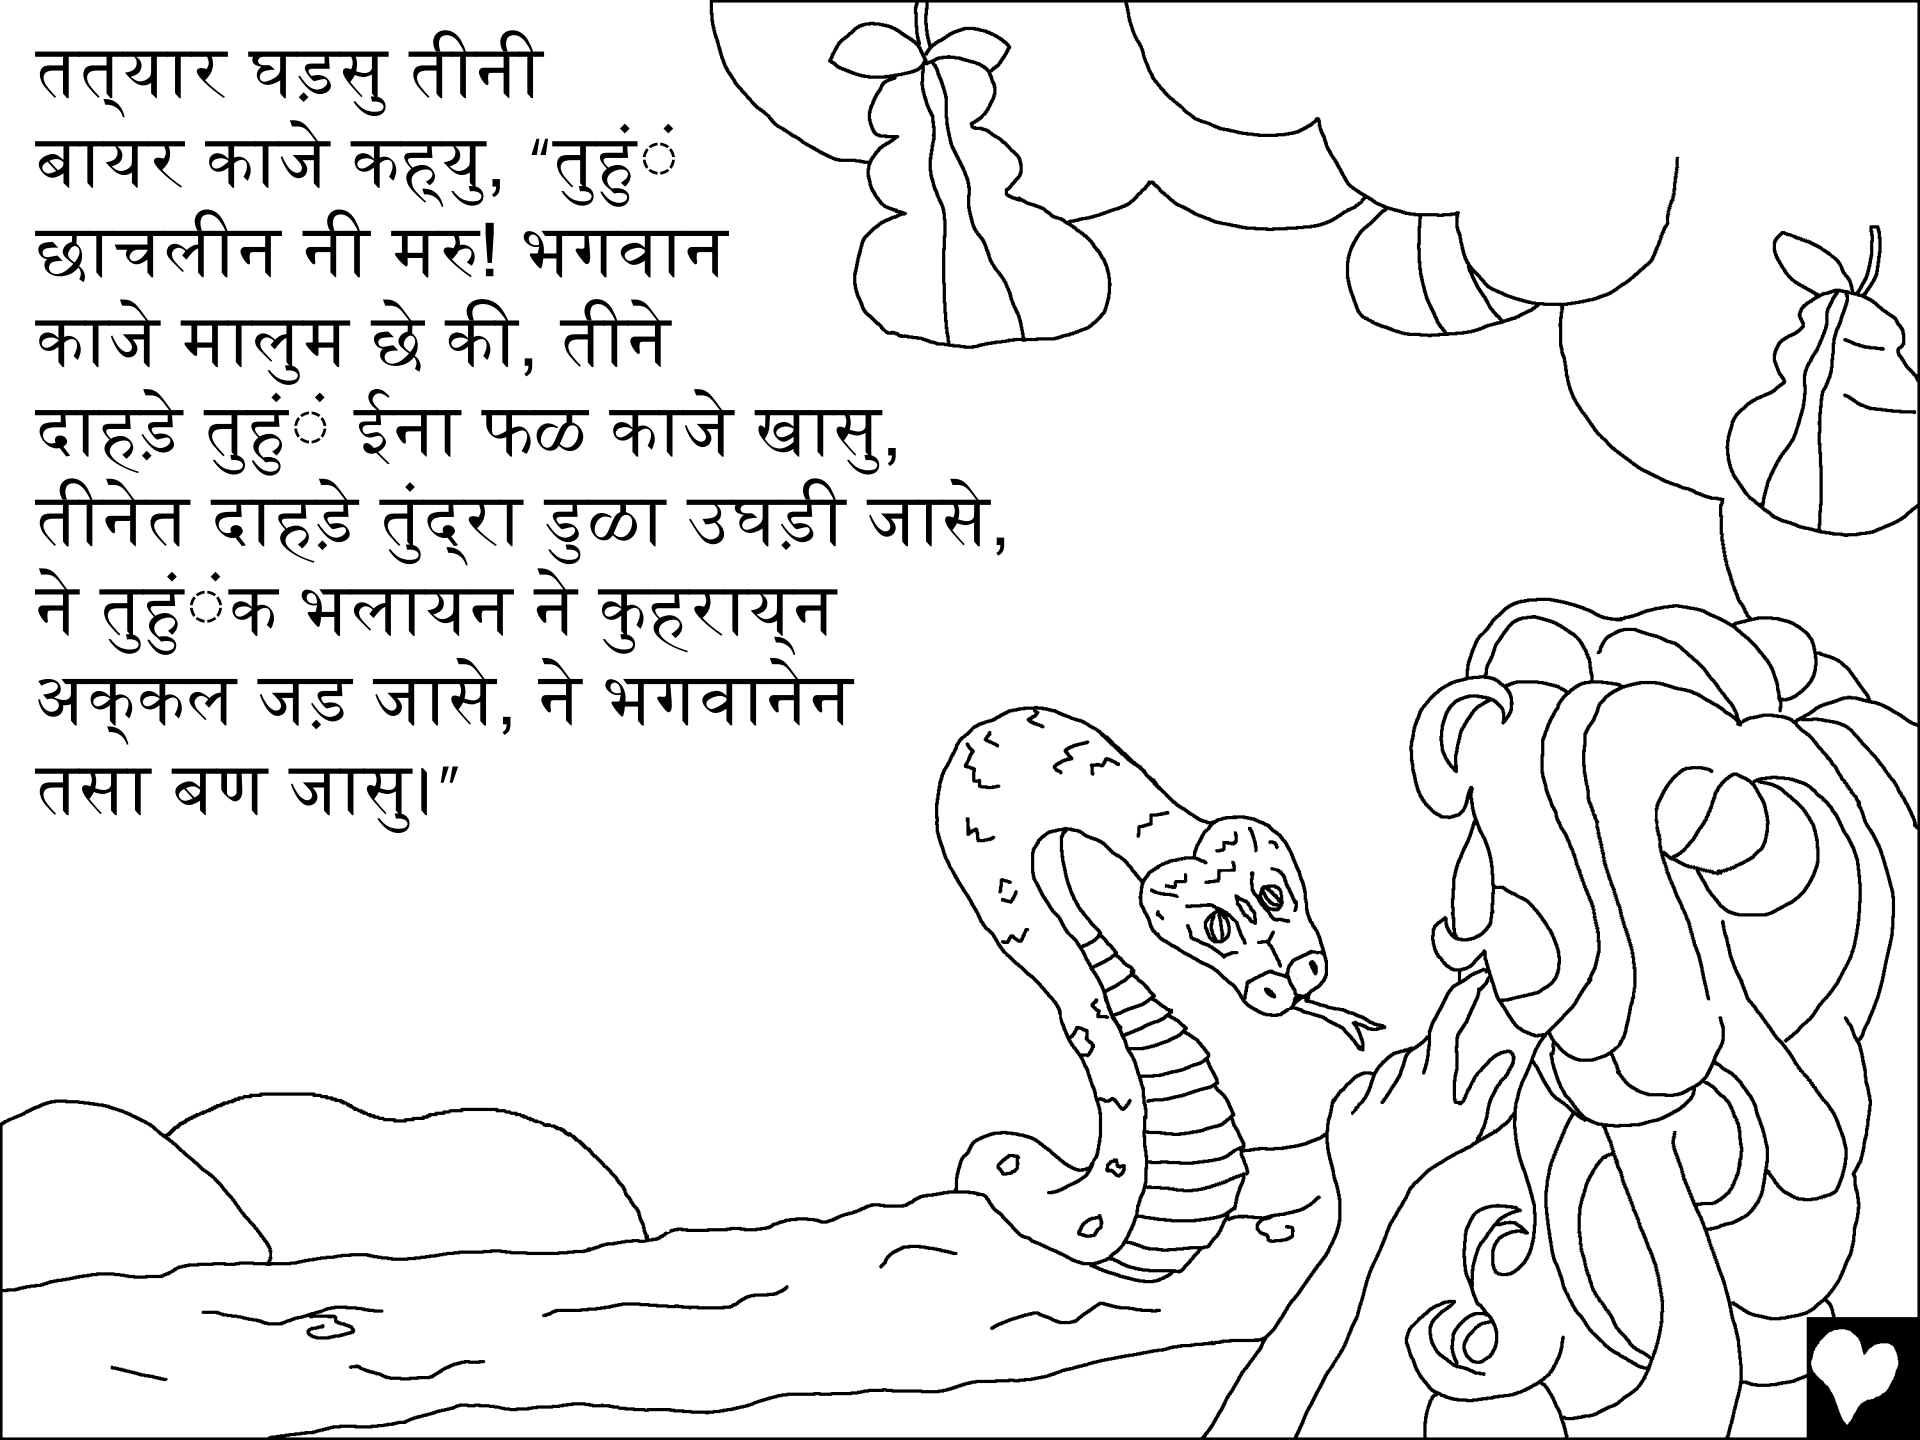 तत्‌यार घड़सु तीनी
बायर काजे कह्‌यु, “तुहुंं
छाचलीन नी मरु! भगवान
काजे मालुम छे की, तीने
दाहड़े तुहुंं ईना फळ काजे खासु,
तीनेत दाहड़े तुंद्‌रा डुळा उघड़ी जासे,
ने तुहुंंक भलायन ने कुहराय्‌न
अक्‌कल जड़ जासे, ने भगवानेन
तसा बण जासु।”